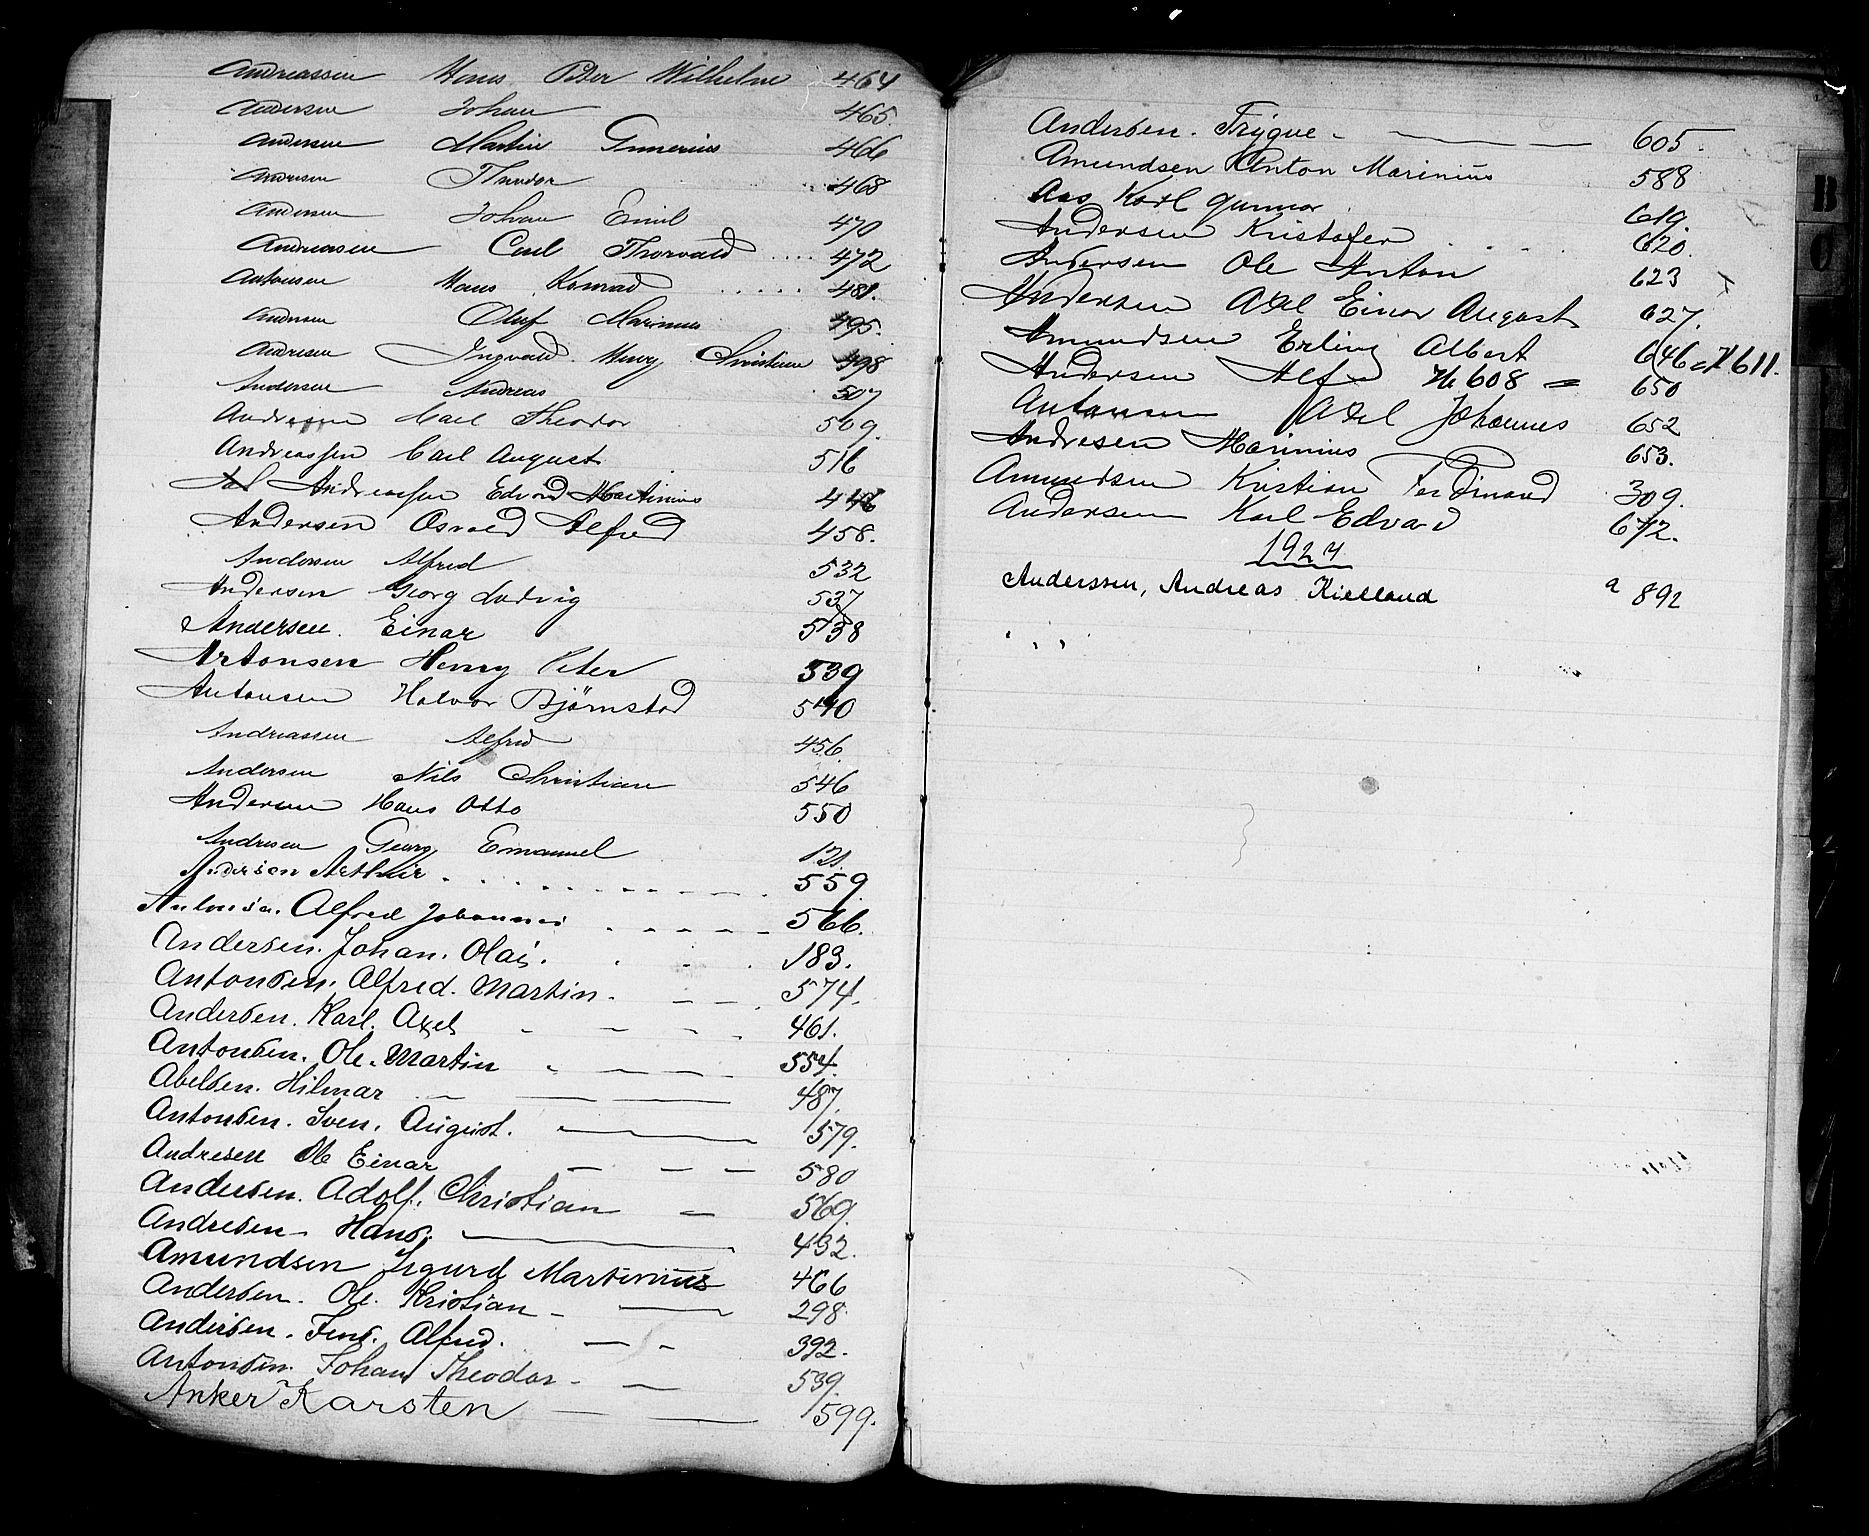 Andreassen Hans Peter Wilhelm 464
Andersen Johan 465.
Andersen Martin Gunerius 466
Andersen Theodor 468
Andersen Johan Emil 470
Andreasen Carl Thorvald .... 472
Antonsen Hans Konrad ..... 481.
Andersen Oluf Marinius 495.
Andresen Ingvald Henry Christian 498
Andersen Andreas 507
Andresen Carl Theodor 509.
Andreassen Carl August 516
Andreassen Edvard Martinius 446
Andersen Osvald Alfred 458.
Andersen Alfred 532
Andersen Georg Ludvig 537
Andersen. Einar 538
Antonsen Henry Peter 539
Antonsen Halvor Bjørnstad 540
Andreassen Alfred 456.
Andersen Nils Christian 546
Andersen Hans Otto 550
Andresen Georg Emanuel 121.
Andersen Arthur 559.
Antonsen. Alfred Johannes 566.
Andersen. Johan. Olai. 183.
Antonsen. Alfred. Martin. 574.
Andersen. Karl. Axel 461.
Antonsen. Ole. Martin 554.
Abelsen. Hilmar 487.
Antonsen. Sven. August. 579.
Andresen Ole Einar 580
Andersen. Adolf. Christian 569.
Andresen Hans. 432.
Amundsen Sigurd Martinius 466
Andersen. Ole. Kristian 298.
Andersen. Jens. Alfred. 392.
Antonsen. Johan Theodor 539.
Anker Karsten 599.
Andersen. Trygve. 605.
Amundsen Anton Marinius 588
Aas Karl Gunnar 619.
Andersen Kristofer 620.
Andersen Ole Anton 623
Andersen Axel Einar August 627.
Amundsen Erling Albert 646 = 611.
Andersen Alf 608 = 650
Antonsen Axel Johannes 652
Andresen Marinius 653.
Amundsen Kristian Ferdinand 309.
Andersen Karl Edvard 672.
1924
Anderssen, Andreas Kielland a 892
B